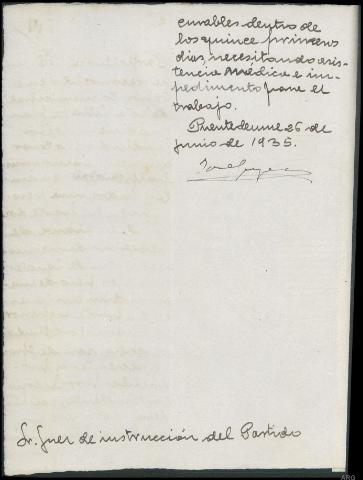 curables dentro de
los quince primeros
dias, necesitando asis-
tencia médica e im-
pedimento para el
trabajo.
Puentedeume 26 de
junio de 1935.
Sr. Juez de instrucción del Partido
ARG